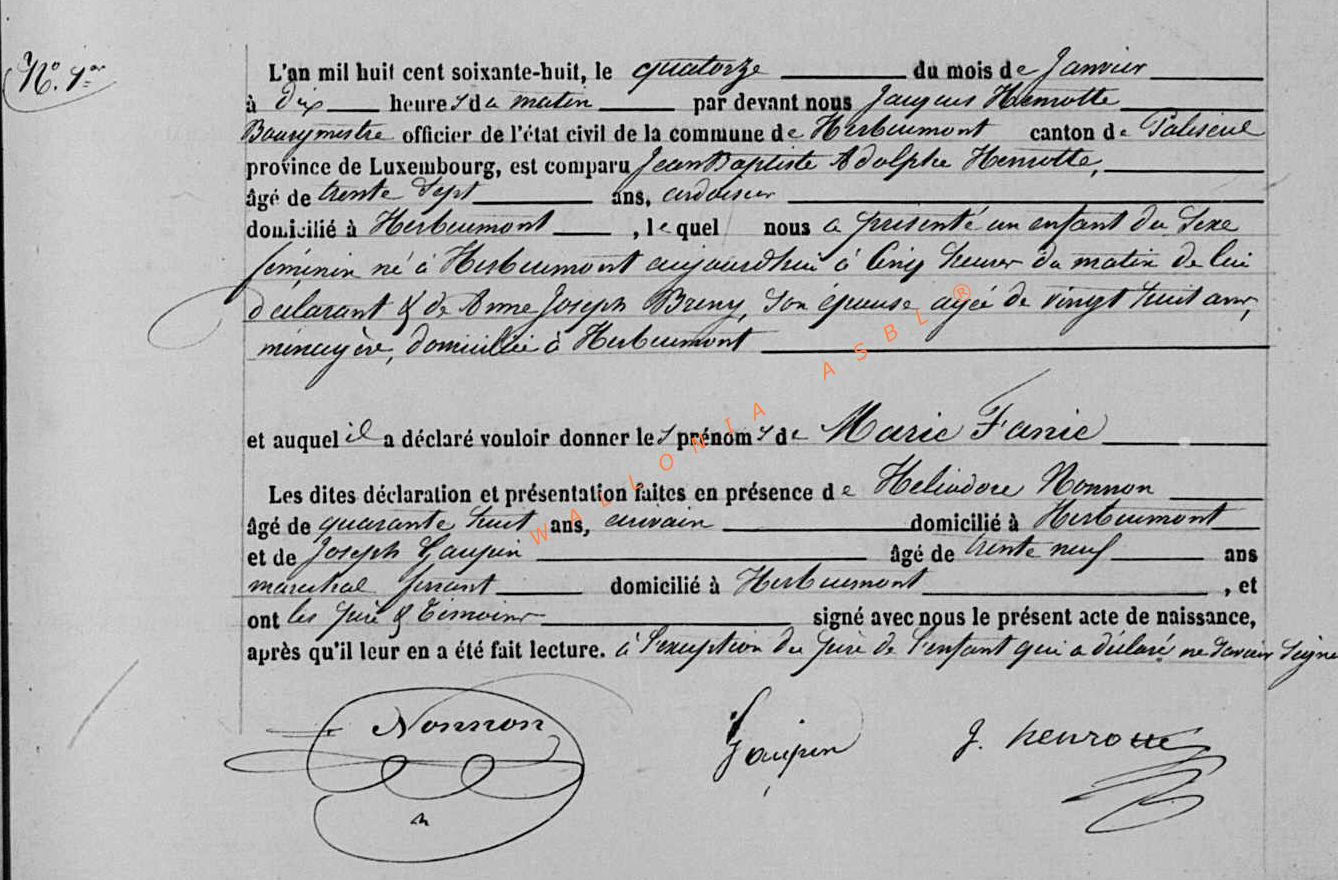 N° 1er
L'an mil huit cent soixante-huit, le quatorze du mois de Janvier
à dix heures du matin par devant nous Jacques Henrotte
Bourgmestre officier de l'état civil de la commune de Herbeumont canton de Paliseul
province de Luxembourg, est comparu Jean Baptiste Adolphe Henrotte,
âgé de trente sept ans, ardoisier
domicilié à Herbeumont, lequel nous a présenté un enfant du sexe
féminin né à Herbeumont aujourdhui à cinq heures du matin de lui
déclarant & de Anne Joseph Breny, son épouse agée de vingt huit ans,
ménagère, domiciliée à Herbeumont
et auquel il a déclaré vouloir donner les prénoms de Marie Fanie
Les dites déclaration et présentation faites en présence de Héliodore Nonnon
âgé de quarante huit ans, domicilié à Herbeumont
et de Joseph Gaupin âgé de trente neuf ans
maréchal ferrant domicilié à Herbeumont, et
ont les père & témoins signé avec nous le présent acte de naissance,
après qu'il leur en a été fait lecture. à l'exception du père de l'enfant qui a déclaré ne savoir signer
Nonnon Gaupin J. henrotte
WALLONIA ASBL ®